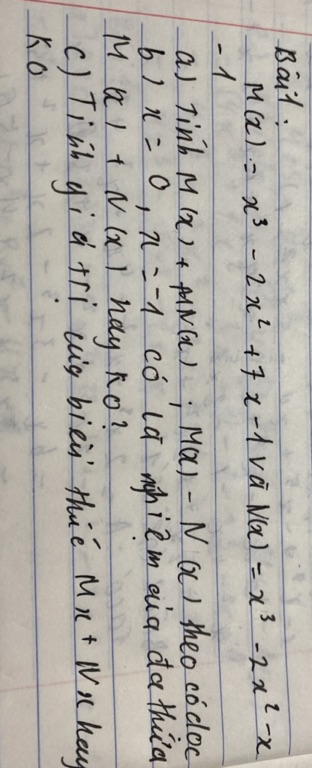 Bài 1:
M(x) = x³ - 2x² + 7x - 1 và N(x) = x³ - 2x² - x
- 1
a) Tính M(x) + N(x) ; M(x) - N(x) theo có dọc
b) x = 0, x = -1 có là nghiệm của đa thứa
M(x) + N(x) hay ko?
c) Tính giá trị của biểu thức Mx + Nx hay
Ko